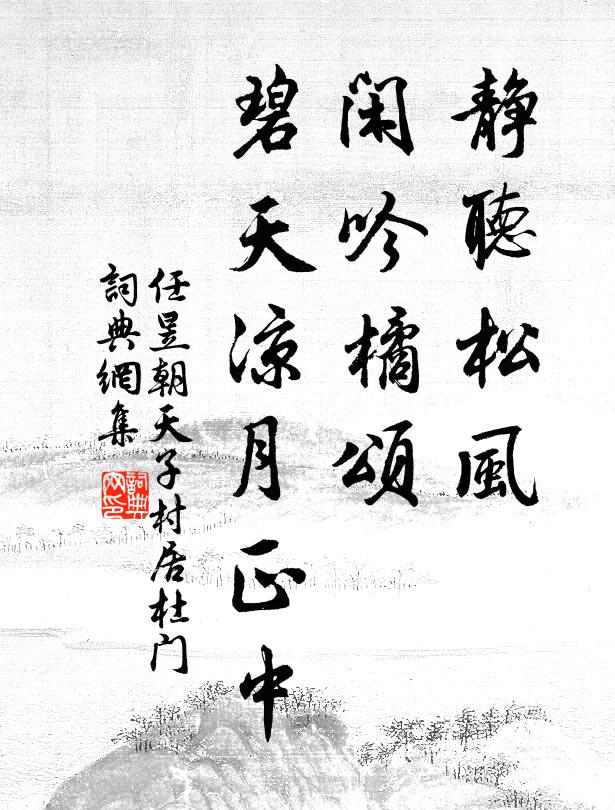 静聽松風
閑吟橘頌
碧天凉月正中
任昱朝天子村居杜门
詞典網集
詞典网印